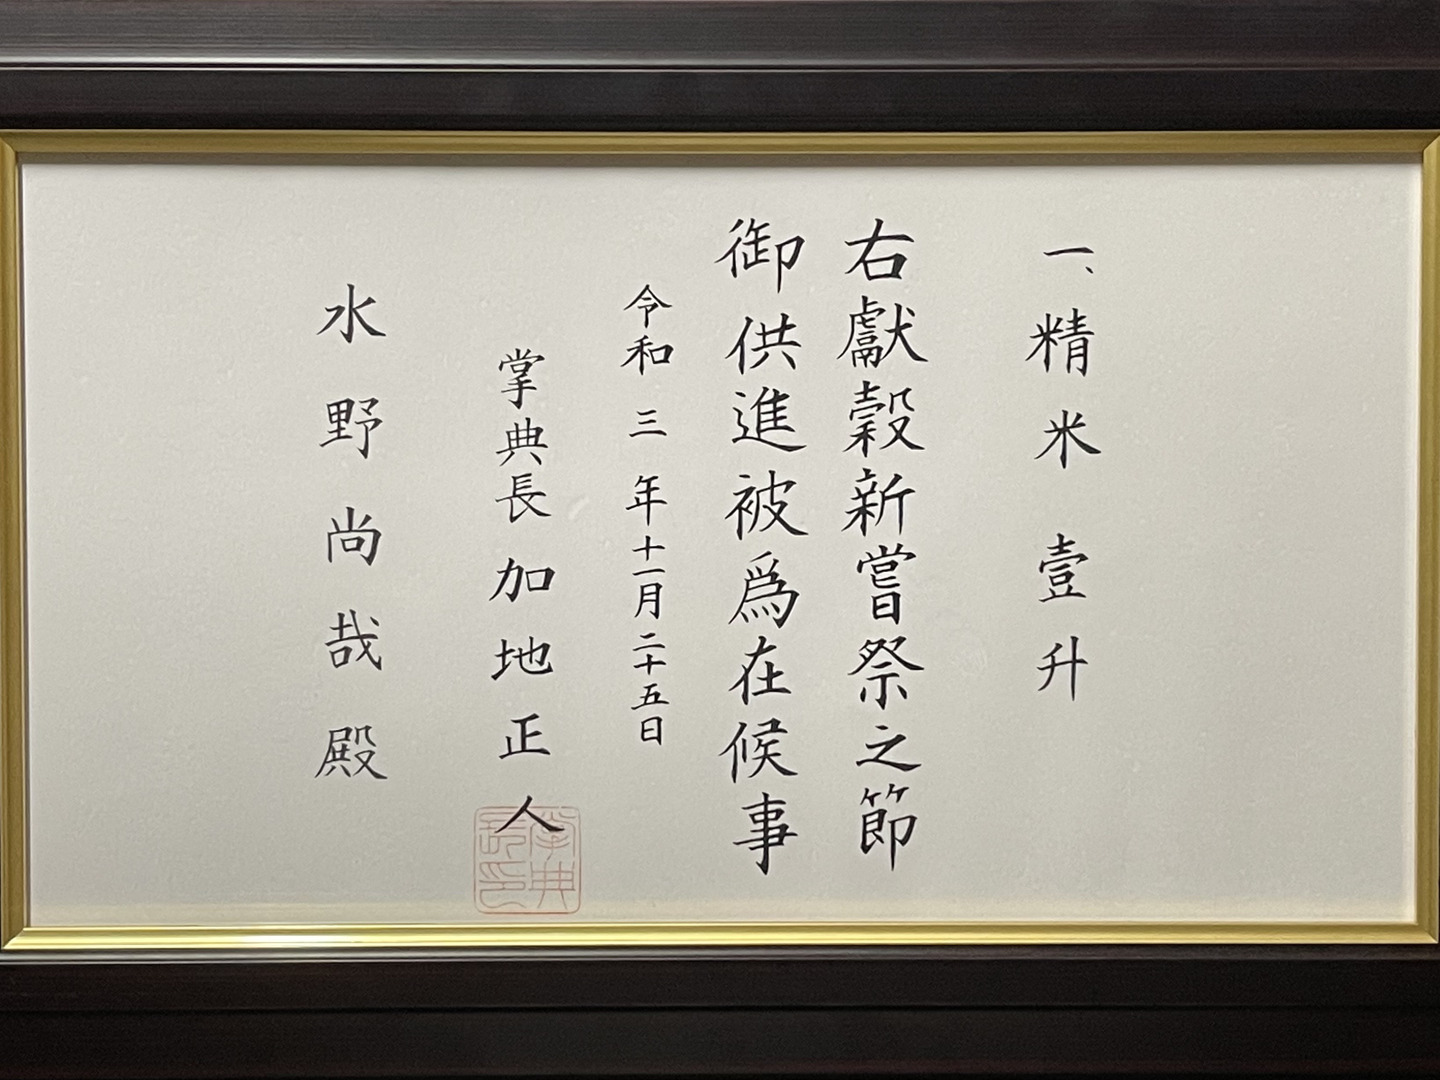 一、精米 壹升
右獻穀新嘗祭之節
御供進被爲在候事
令和三年十一月二十五日
掌典長 加地正人
掌典長印
水野尚哉殿